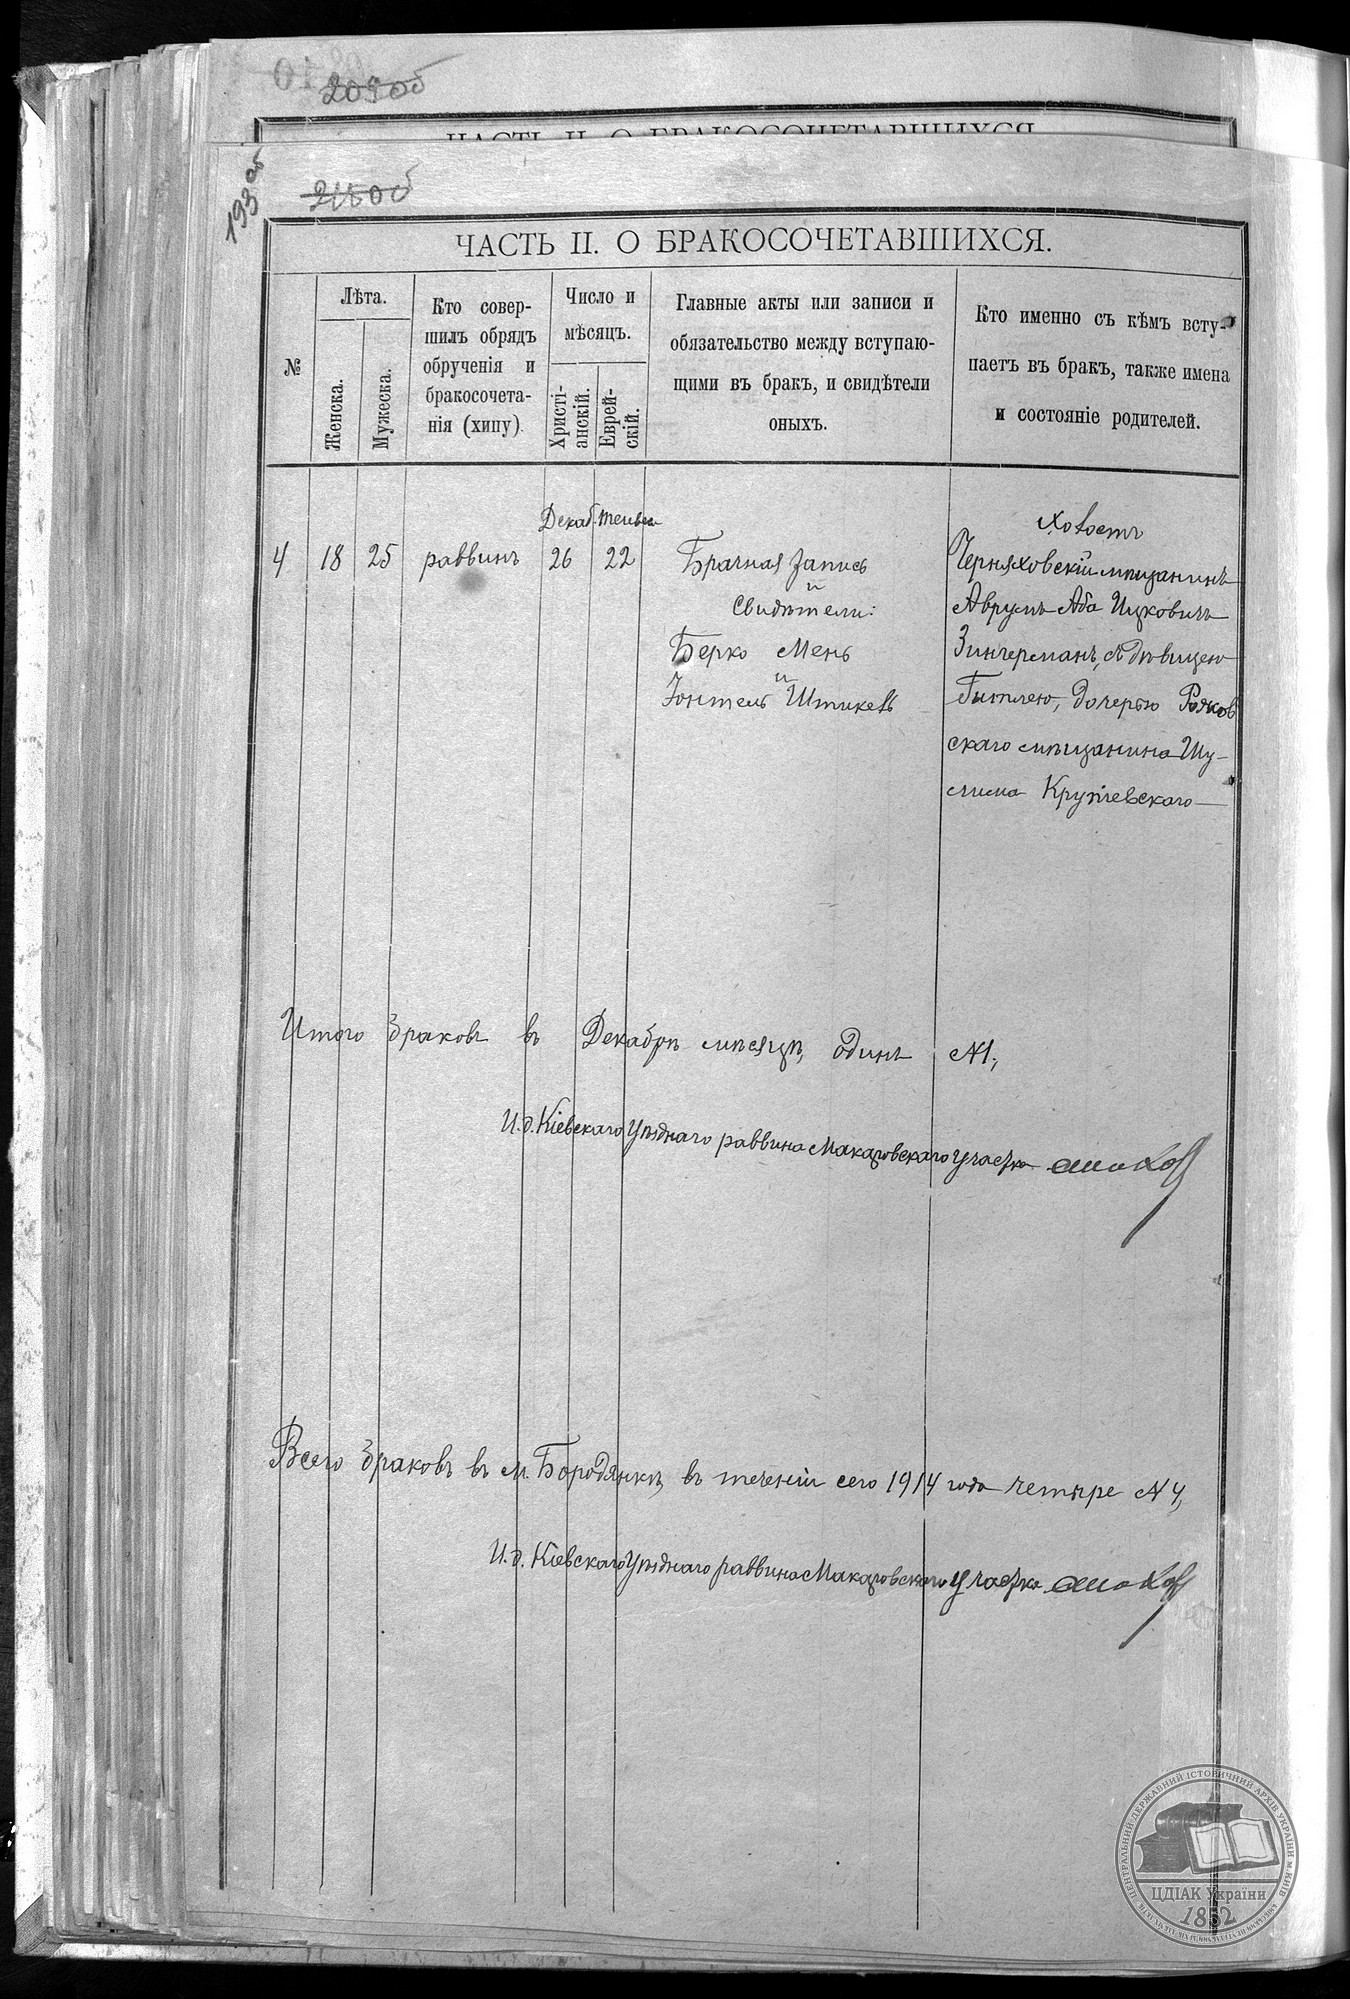 209об
ЧАСТЬ II. О БРАКОСОЧЕТАВШИХСЯ
193 об
ЧАСТЬ II. О БРАКОСОЧЕТАВШИХСЯ.
№
Лѣта.
Женска.
Мужеска.
Кто совер-
шилъ обрядъ
обрученія и
бракосочета-
нія (хипу).
Число и
мѣсяцъ.
Христі-
анскій.
Еврей-
скій.
Главные акты или записи и
обязательство между вступаю-
щими въ бракъ, и свидѣтели
оныхъ.
Кто именно съ кѣмъ всту-
паетъ въ бракъ, также имена
и состояніе родителей.
Декаб. Тейвеса
холостъ
4 18 25 раввинъ 26 22 Брачная запись Черняховскій мѣщанинъ
и
Свидѣтели: Аврумъ Аба Ицковичъ
Берко Мень Зингерманъ, съ дѣвицею
и
Іонтель Штикель Гитлею, дочерью
скаго мѣщанина Шу-
лима Кружевскаго
Итого браковъ въ Декабрѣ мѣсяцѣ, одинъ №1,
И.д. Кіевскаго Уѣзднаго раввина Макаровскаго участка
Всего браковъ въ м. Бородянкѣ въ теченіи сего 1914 года четыре №4,
И.д. Кіевскаго Уѣзднаго раввина Макаровскаго участка
ЦЕНТРАЛЬНИЙ ДЕРЖАВНИЙ ІСТОРИЧНИЙ АРХІВ УКРАЇНИ М. КИЇВ
ЦДІАК України
1852